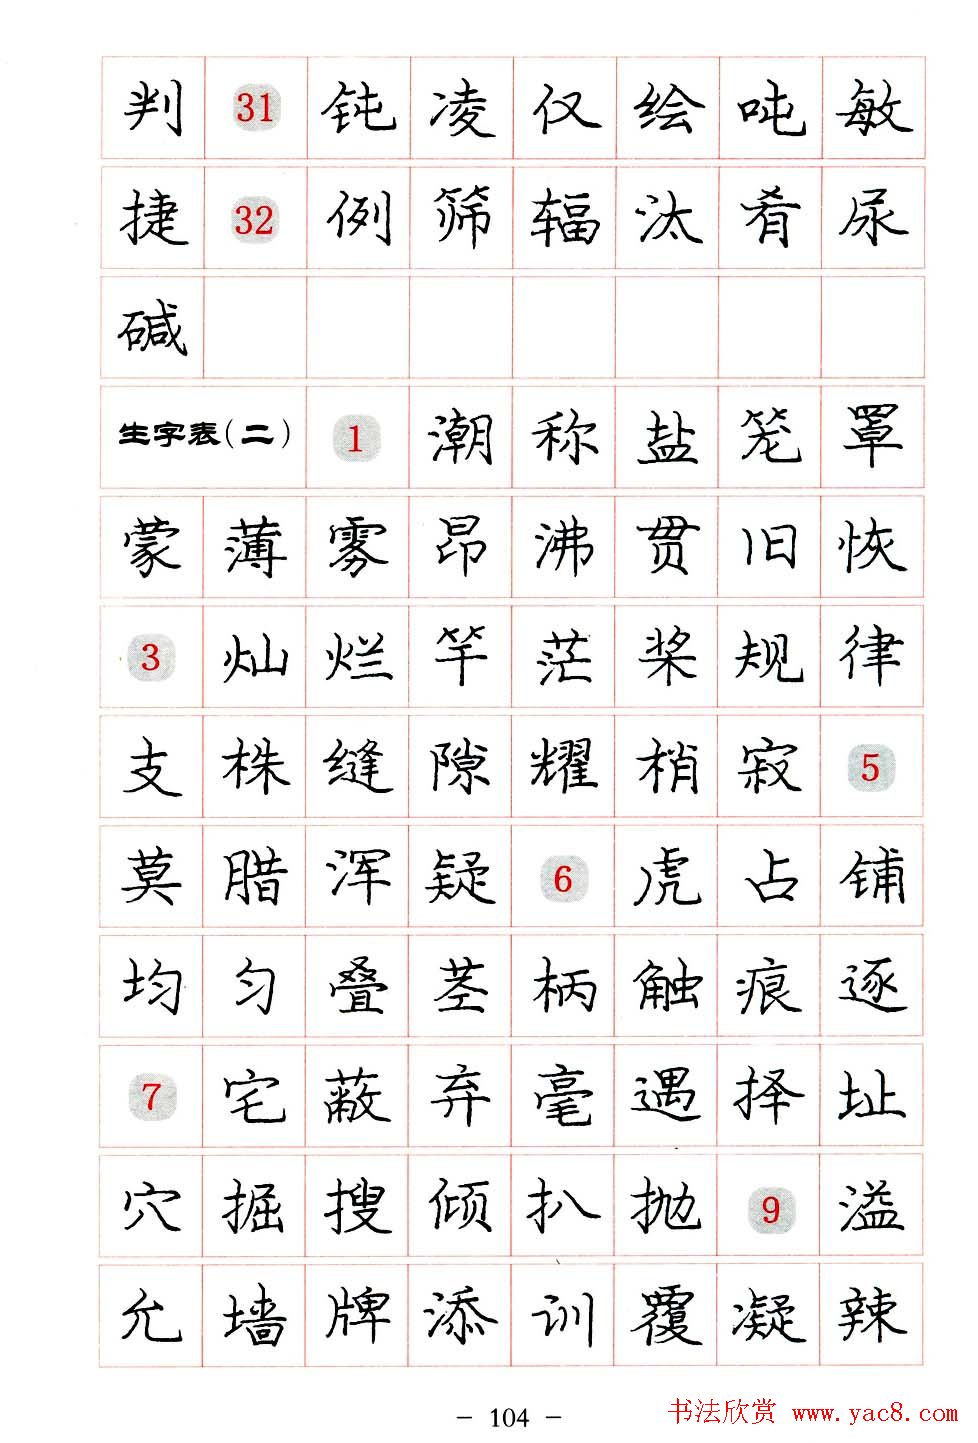 判 31 钝 凌 仅 绘 吨 敏
捷 32 例 筛 辐 汰 肴 尿
碱
生字表（二） 1 潮 称 盐 笼 罩
蒙 薄 雾 昂 沸 贯 旧 恢
3 灿 烂 竿 茫 桨 规 律
支 株 缝 隙 耀 梢 寂 5
莫 腊 浑 疑 6 虎 占 铺
均 匀 叠 茎 柄 触 痕 逐
7 宅 蔽 弃 毫 遇 择 址
穴 掘 搜 倾 扒 抛 9 溢
允 墙 牌 添 训 覆 凝 辣
- 104 -
书法欣赏 www.yac8.com